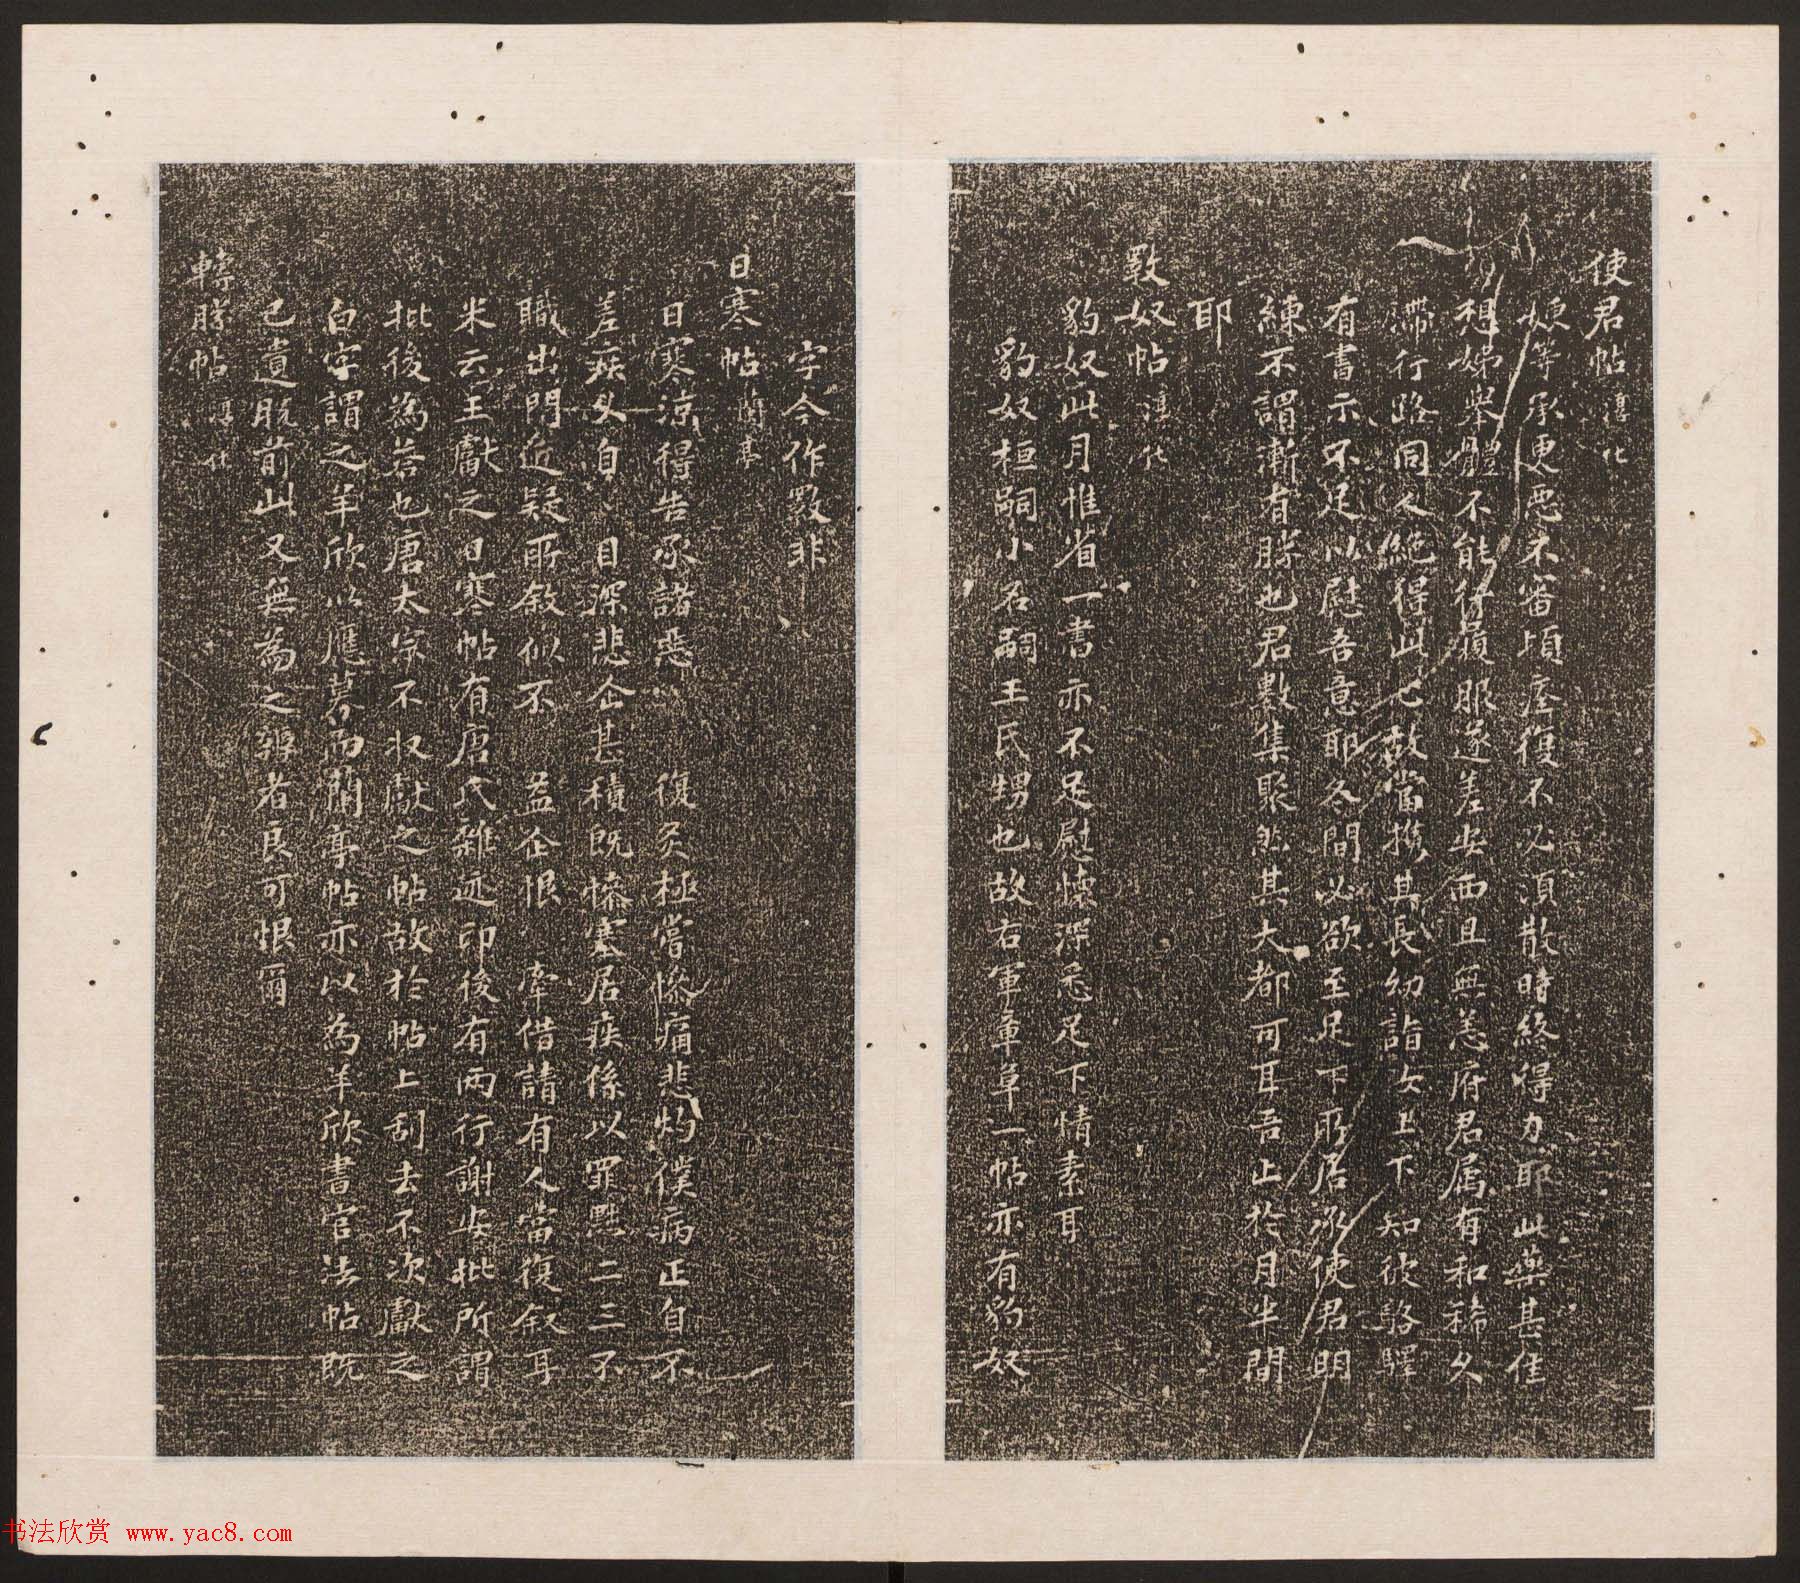 使君帖 淳化
等承更惡不審頃差復不必須散時終得力耶此藥甚佳
想姊舉體不能行履服遂差安西且無恙府君属有和稀久
滯行路同人絕得此七故當挍其長幼詣女上下知欣駱驛
有書示不足以慰吾意耶冬間必欲至足下所居承使君明
練不謂漸有勝也君數集聚然其大都可耳吾止於月半間
耶
㺉奴帖 淳化
豹奴此月惟省一書亦不足慰懷深悉足下情素耳
豹奴桓嗣小名嗣王氏甥也故右軍章草一帖亦有豹奴
字今作㺉非
日寒帖 蘭亭
日寒凉得告承諸惡 復灸極當慘痛悲灼僕病正自不
差疾久自 目深悲企甚積既慘塞居疾係以罪黜二三不
職出門近疑所敘似不 益企恨 牽借請有人當復叙耳
米云王獻之日寒帖有唐氏雜迹印後有兩行謝安批所謂
批後為荅也唐太宗不收獻之帖故於帖上刮去不次獻之
白字謂之羊欣以應募而蘭亭帖亦以為羊欣書官法帖既
已遺脫前此又無為之辨者良可恨爾
轉勝帖 淳化
书法欣赏 www.yac8.com